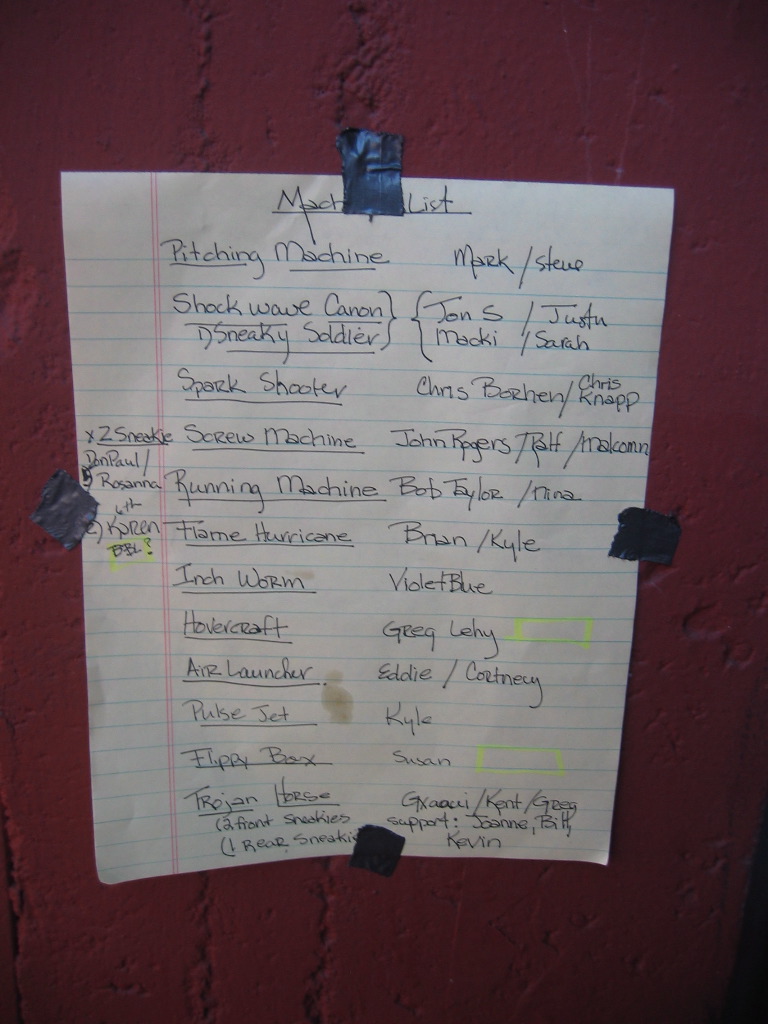 Mach List
Pitching Machine Mark / Steve
Shockwave Canon } { Jon S / Justin
1) Sneaky Soldier } { Macki / Sarah
Spark Shooter Chris Borhen / Chris Knapp
x 2 Sneakie Screw Machine John Rogers / Ralf / Malcomn
DonPaul /
Rosanna Running Machine Bob Taylor / Nina
2) Karen Flame Hurricane Brian / Kyle
BBL?
Inch Worm VioletBlue
Hovercraft Greg Lehy
Air Launcher. Eddie / Cortney
Pulse Jet Kyle
Flippy Box Susan
Trojan Horse /Kent/Greg
(2 front Sneakies support: Joanne, Bill,
(1 Rear Sneaki Kevin